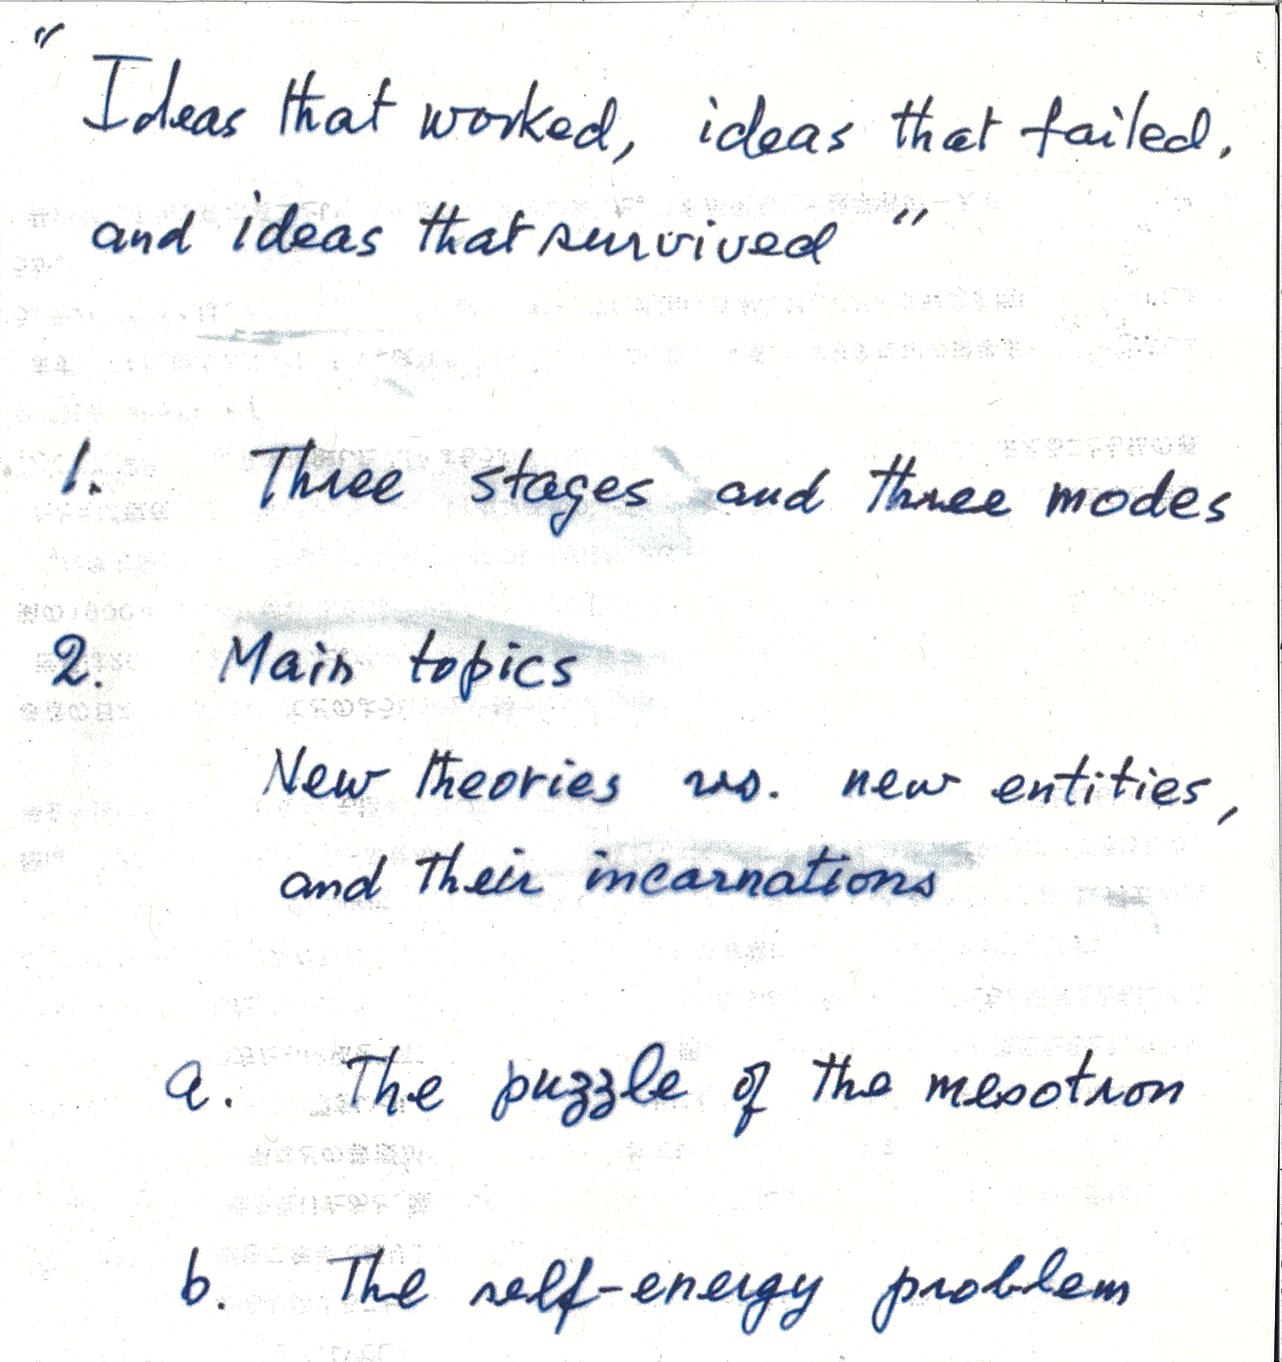 "Ideas that worked, ideas that failed,
and ideas that survived"
1. Three stages and three modes
2. Main topics
New theories vs. new entities,
and their incarnations
a. The puzzle of the mesotron
b. The self-energy problem